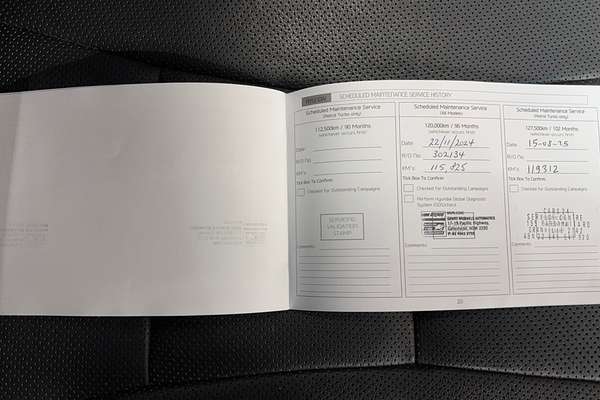 SCHEDULED MAINTENANCE SERVICE HISTORY
Scheduled Maintenance Service
(Petrol Turbo only)
112,500km / 90 Months
(whichever occurs first)
Date
R/O No.
KM's
Tick Box To Confirm
Checked for Outstanding Campaigns
SERVICING
VALIDATION
STAMP
Comments:
Scheduled Maintenance Service
(All Models)
120,000km / 96 Months
(whichever occurs first)
Date 22/11/2024
R/O No. 302134
KM's 115,825
Tick Box To Confirm
Checked for Outstanding Campaigns
Perform Hyundai Global Diagnostic
System (GDS)check
17-19 Pacific Highway,
Comments:
20
Scheduled Maintenance Service
(Petrol Turbo only)
127,500km / 102 Months
(whichever occurs first)
Date 15-08-25
R/O No.
KM's 119312
Tick Box To Confirm
Checked for Outstanding Campaigns
Comments: